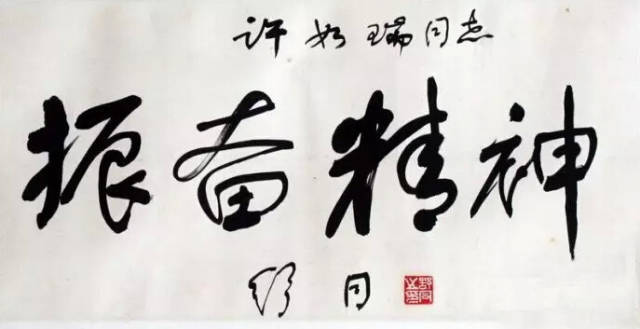 许如瑞同志
振奋精神
舒同